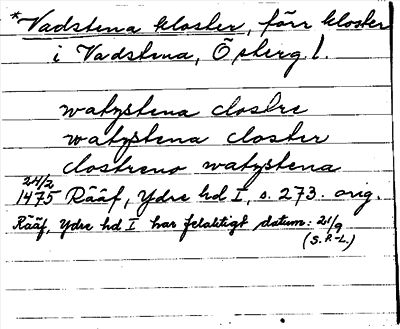 *Vadstena kloster, förr kloster
i Vadstena, Österg. l.
watzstena clostre
watzstena closter
clostreno watzstena
24/2
1475 Rääf, Ydre hd I, s. 273. orig.
Rääf, Ydre hd I har felaktigt datum: 21/9
(S. P.-L.)